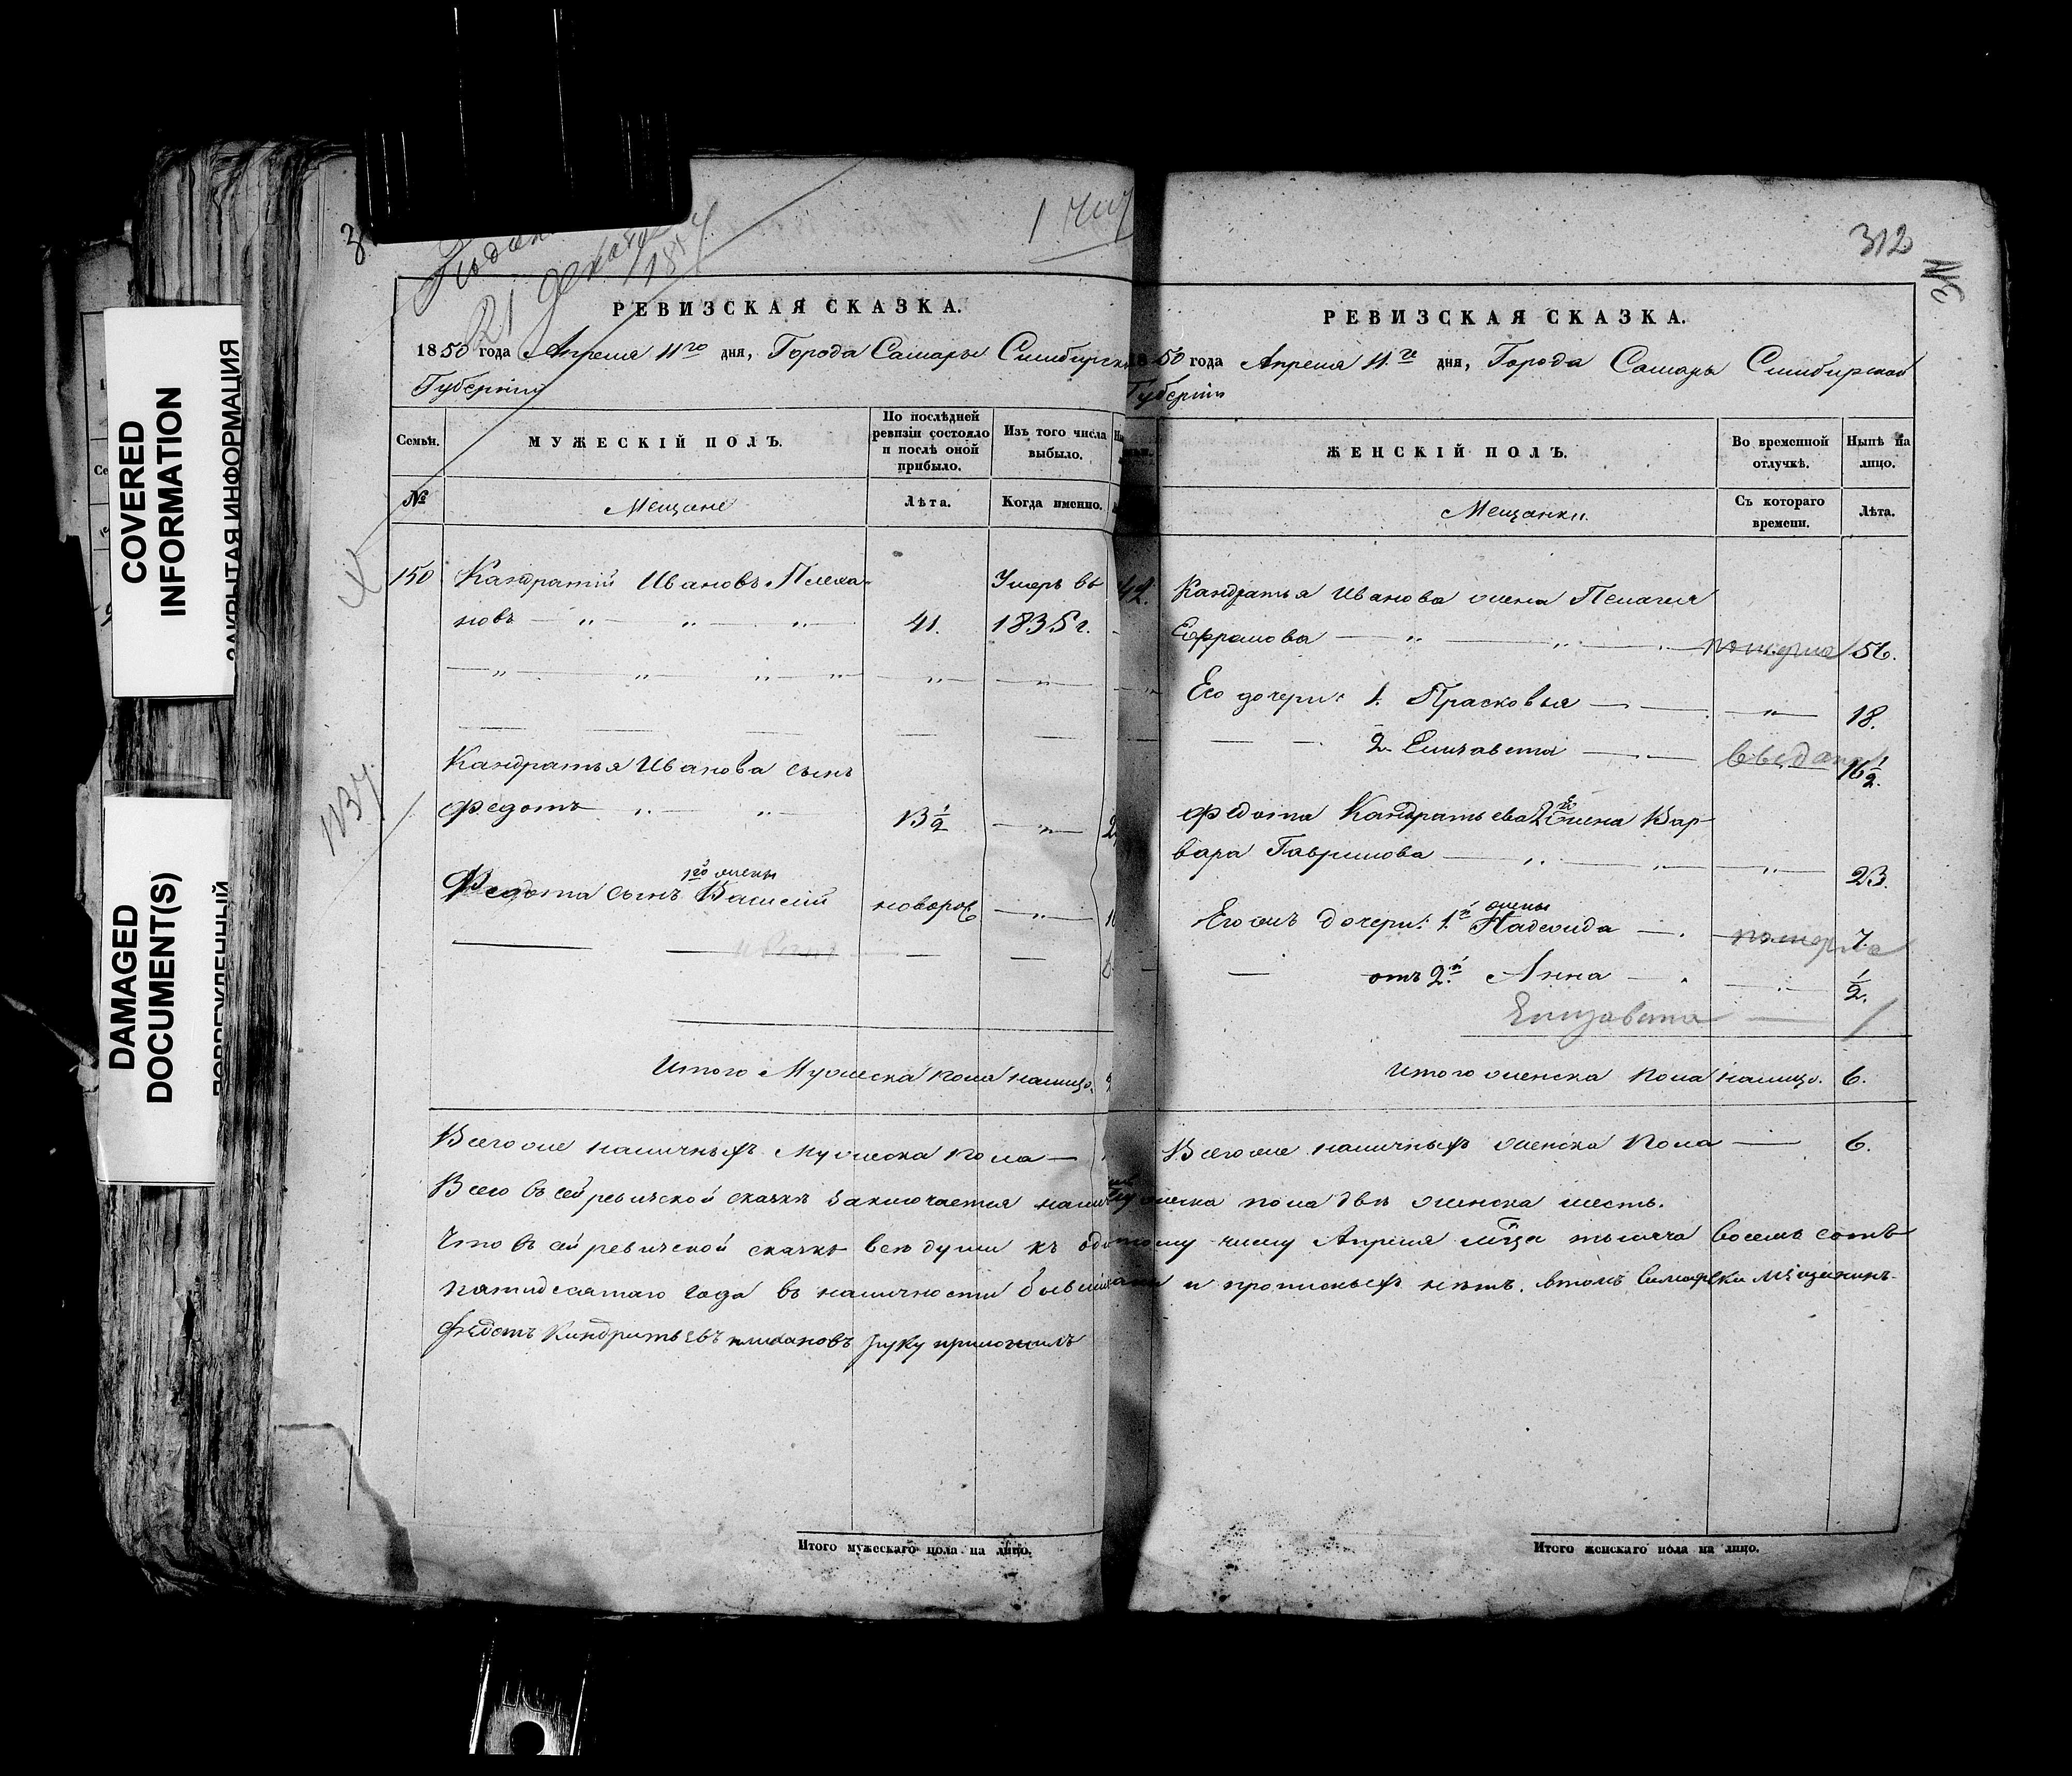 COVERED
INFORMATION
ЗАКРЫТАЯ ИНФОРМАЦИЯ
DAMAGED
DOCUMENT(S)
21 декабря
1857
РЕВИЗСКАЯ СКАЗКА.
1850 года Апреля 11го дня, Города Самары Симбирской
Губернии
Семьи.
МУЖЕСКІЙ ПОЛЪ.
По послѣдней ревизіи состояло и послѣ оной прибыло.
Изъ того числа выбыло.
№
Мещане
Лѣта.
Когда именно.
150 Кандратій Ивановъ Плеха- Умеръ въ
новъ — „ — „ — „ — 41. 1835 г.
Кандратья Иванова сынъ
Федотъ — „ — „ 13 1/2 — „ —
1го жены
Федота сынъ Василій новорож — „ —
Итого Мужеска пола налицо.
Всего же наличныхъ Мужеска пола —
Всего въ сей ревизской сказкѣ заключается налич
Что въ сей ревизской сказкѣ всѣ души къ одн
пятидесятаго года въ наличности бывши
Федотъ Кандратьевъ Плехановъ руку приложилъ
Итого мужескаго пола на лицо.
312
РЕВИЗСКАЯ СКАЗКА.
1850 года Апреля 11го дня, Города Самары Симбирской
Губерніи
ЖЕНСКІЙ ПОЛЪ.
Во временной отлучкѣ.
Нынѣ на лицо.
Мещанки.
Съ котораго времени.
Лѣта.
Кандратья Иванова жена Пелагея
Ефраимова — „ — „ — померла 56.
Его дочери: 1. Прасковья — — „ — 18.
2. Елизавета — — выдана 16 1/2.
Федота Кандратьева 2я жена Вар-
вара Гаврилова — „ — „ — „ — 23.
жены
Его жъ дочери: 1й Надежда — померла 7.
отъ 2й Анна — 1/2.
Елизавета —
Итого женска пола налицо. 6.
Всего же наличныхъ женска пола — 6.
мужеска пола двѣ женска шесть.
тому числу Апреля мѣца тысяча восемь сотъ
и прописныхъ нѣтъ. втомъ Самарски мѣщанинъ
Итого женскаго пола на лицо.